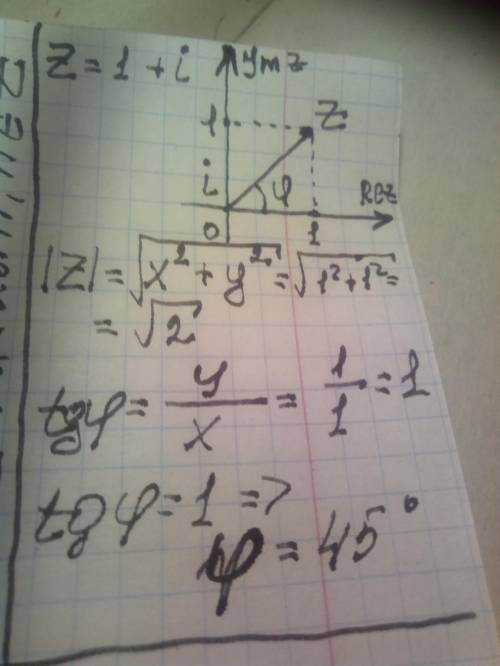 Z = 1 + i
Ymz
1
Z
i
φ
REZ
0
1
|Z| = √x² + y² = √1² + 1² =
= √2
tgφ = y/x = 1/1 = 1
tgφ = 1 =>
φ = 45°